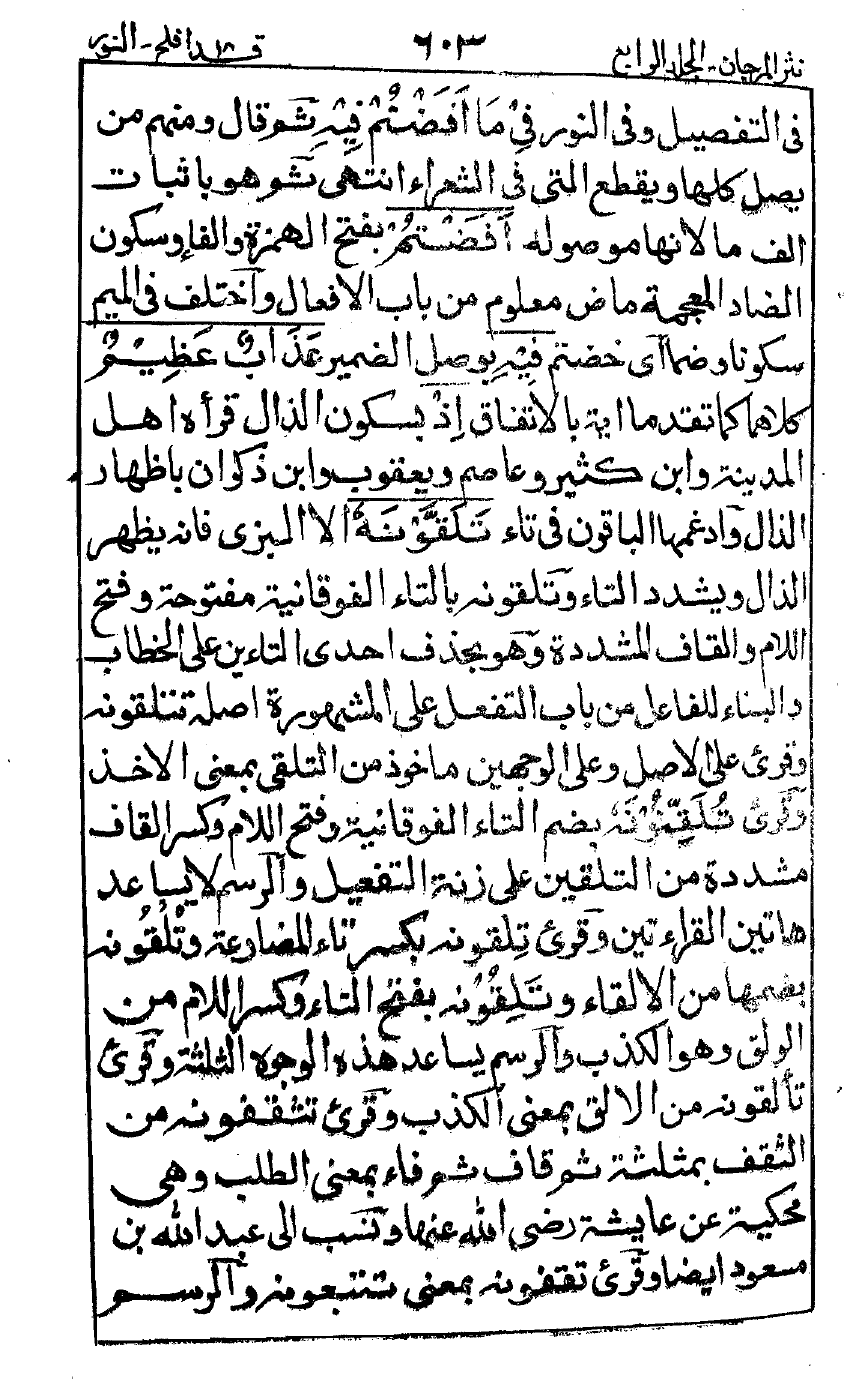 نثر المرجان - الجلد الرابع ٦٠٣ قد افلح ١٨ - النور
فى التفصيل وفى النور فِىْ مَا أَفَضْتُمْ فِيْهِ ثم قال ومنهم من
يصل كلها ويقطع التى فى الشعراء انتهى ثم هو باثبات
الف ما لانها موصوله أَفَضْتُمْ بفتح الهمزة والفاء وسكون
الضاد المعجمة ماض معلوم من باب الافعال وآختلف فى الميم
سكونا وضما اى خضتم فِيْهِ بوصل الضمير عَذَابٌ عَظِيْمٌ
كلاهما كما تقدما اية بالاتفاق إِذْ بسكون الذال قرأه اهل
المدينة وابن كثير وعاصم ويعقوب وابن ذكوان باظهار
الذال وآدغمها الباقون فى تاء تَلَقَّوْنَهٗ الا البزى فانه يظهر
الذال ويشدد التاء وتلقونه بالتاء الفوقانية مفتوحة وفتح
اللام والقاف المشددة وهو بحذف احدى التاءين على الخطاب
والبناء للفاعل من باب التفعل على المشهورة اصله تتلقونه
وقرئ على الاصل وعلى الوجهين ماخوذ من التلقى بمعنى الاخذ
وقرئ تُلَقِّنُوْنَهٗ بضم التاء الفوقانية وفتح اللام وكسر القاف
مشددة من التلقين على زنة التفعيل وآلرسم لا يساعد
هاتين القراءتين وقرئ تِلقونه بكسر تاء المضارعة وتُلْقُونه
بضمها من الالقاء وتَلِقُوْنه بفتح التاء وكسر اللام من
الولق وهو الكذب وآلرسم يساعد هذه الوجوه الثلثة وقرئ
تألقونه من الالق بمعنى الكذب وقرئ تثقفونه من
الثقف بمثلثة ثم قاف ثم فاء بمعنى الطلب وهى
محكية عن عايشة رضى الله عنها وتنسب الى عبد الله بن
مسعود ايضا وقرئ تقتفونه بمعنى تتبعونه وآلرسم